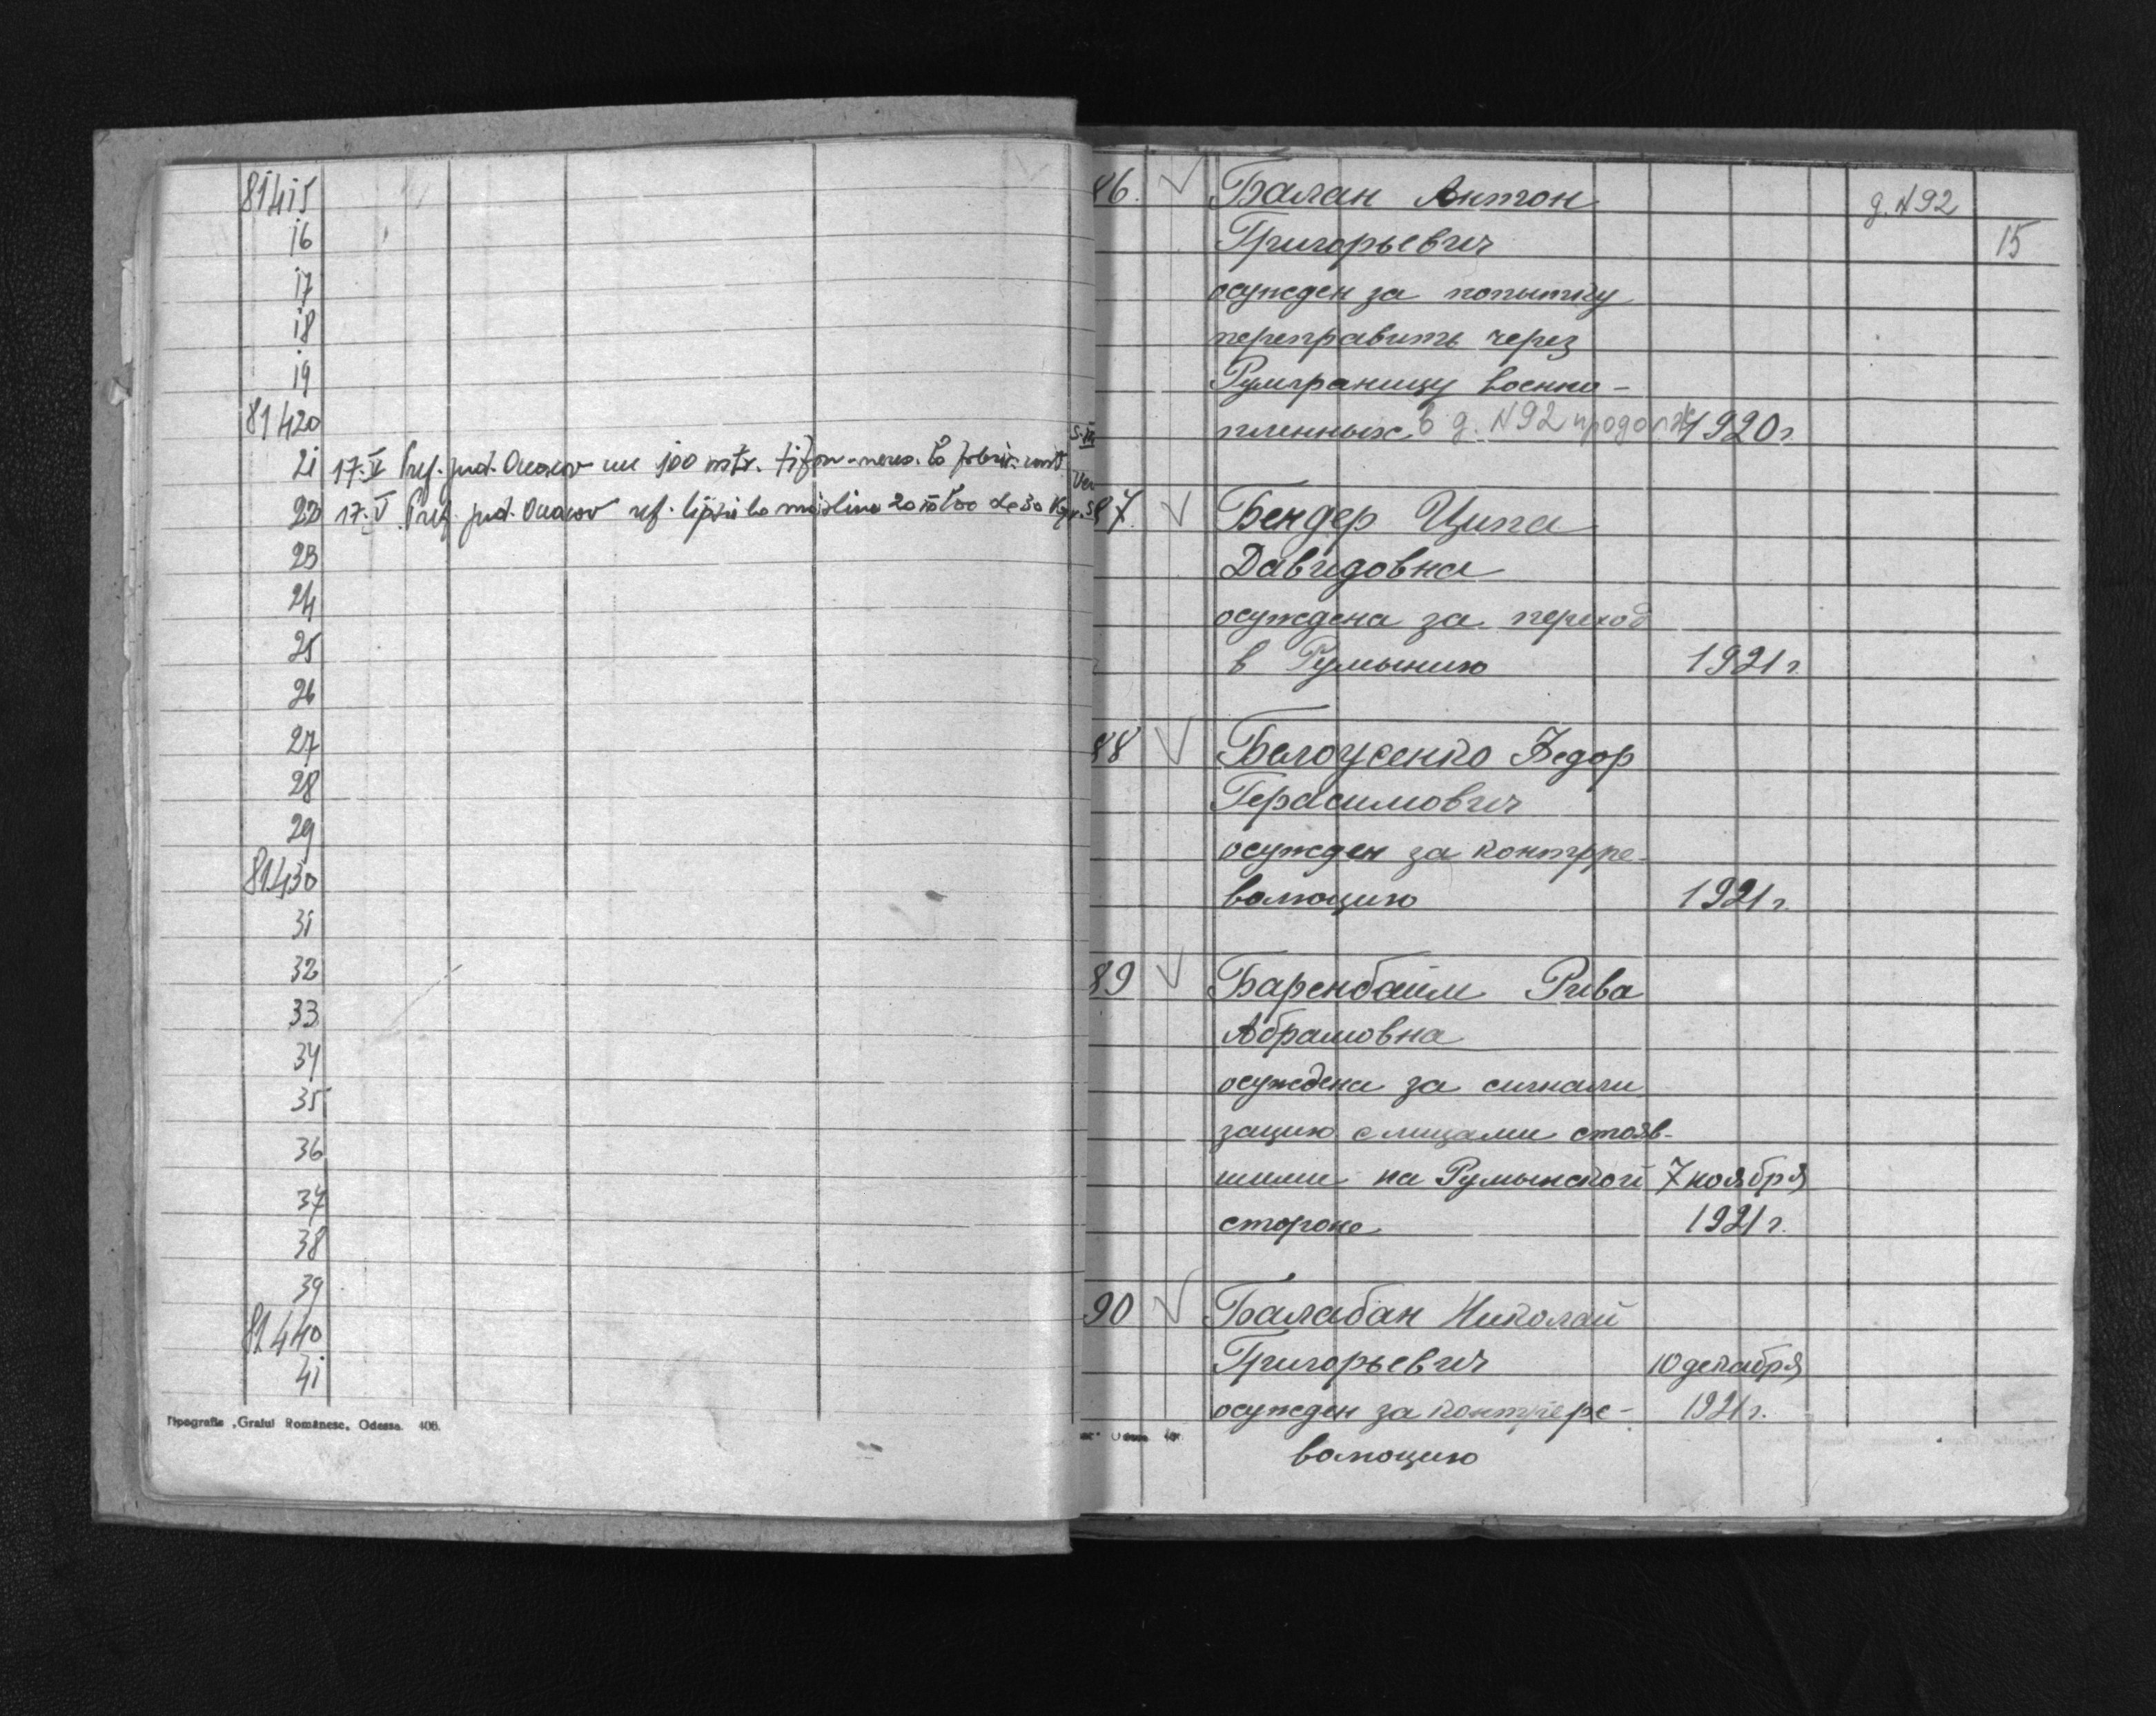 81415
16
17
18
19
81420
21 17.V Pref. jud. Oceacov 100 mtr. tifon
22 17.V Pref. jud. Oceacov ref. lipsă la măsline 20 de 50 Kgr.
23
24
25
26
27
28
29
81430
31
32
33
34
35
36
37
38
39
81440
41
Tipografia „Graiul Românesc„ Odessa. 406.
86. Балан Антон
д. №92
Григорьевич
15
осужден за попытку
переправить через
Румграницу военно-
пленных в д. №92 продолж 1920 г.
87. Бендер Ципа
Давидовна
осуждена за переход
в Румынию 1921 г.
88 Белоусенко Федор
Герасимович
осужден за контрре-
волюцию 1921 г.
89 Баренбойм Рива
Абрамовна
осуждена за сигнали
зацию с лицами стояв-
шими на Румынской 7 ноября
стороне 1921 г.
90 Балабан Николай
Григорьевич 10 декабря
осужден за контрре- 1921 г.
волюцию